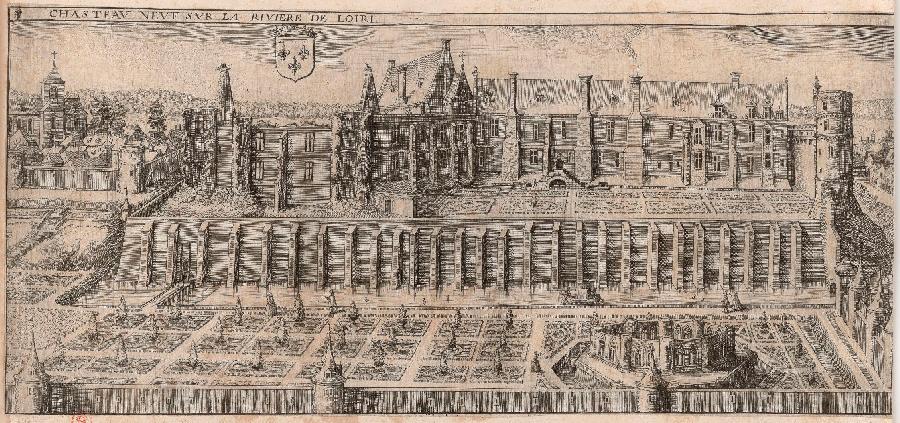 CHASTEAV NEVF SVR LA RIVIERE DE LOIRE